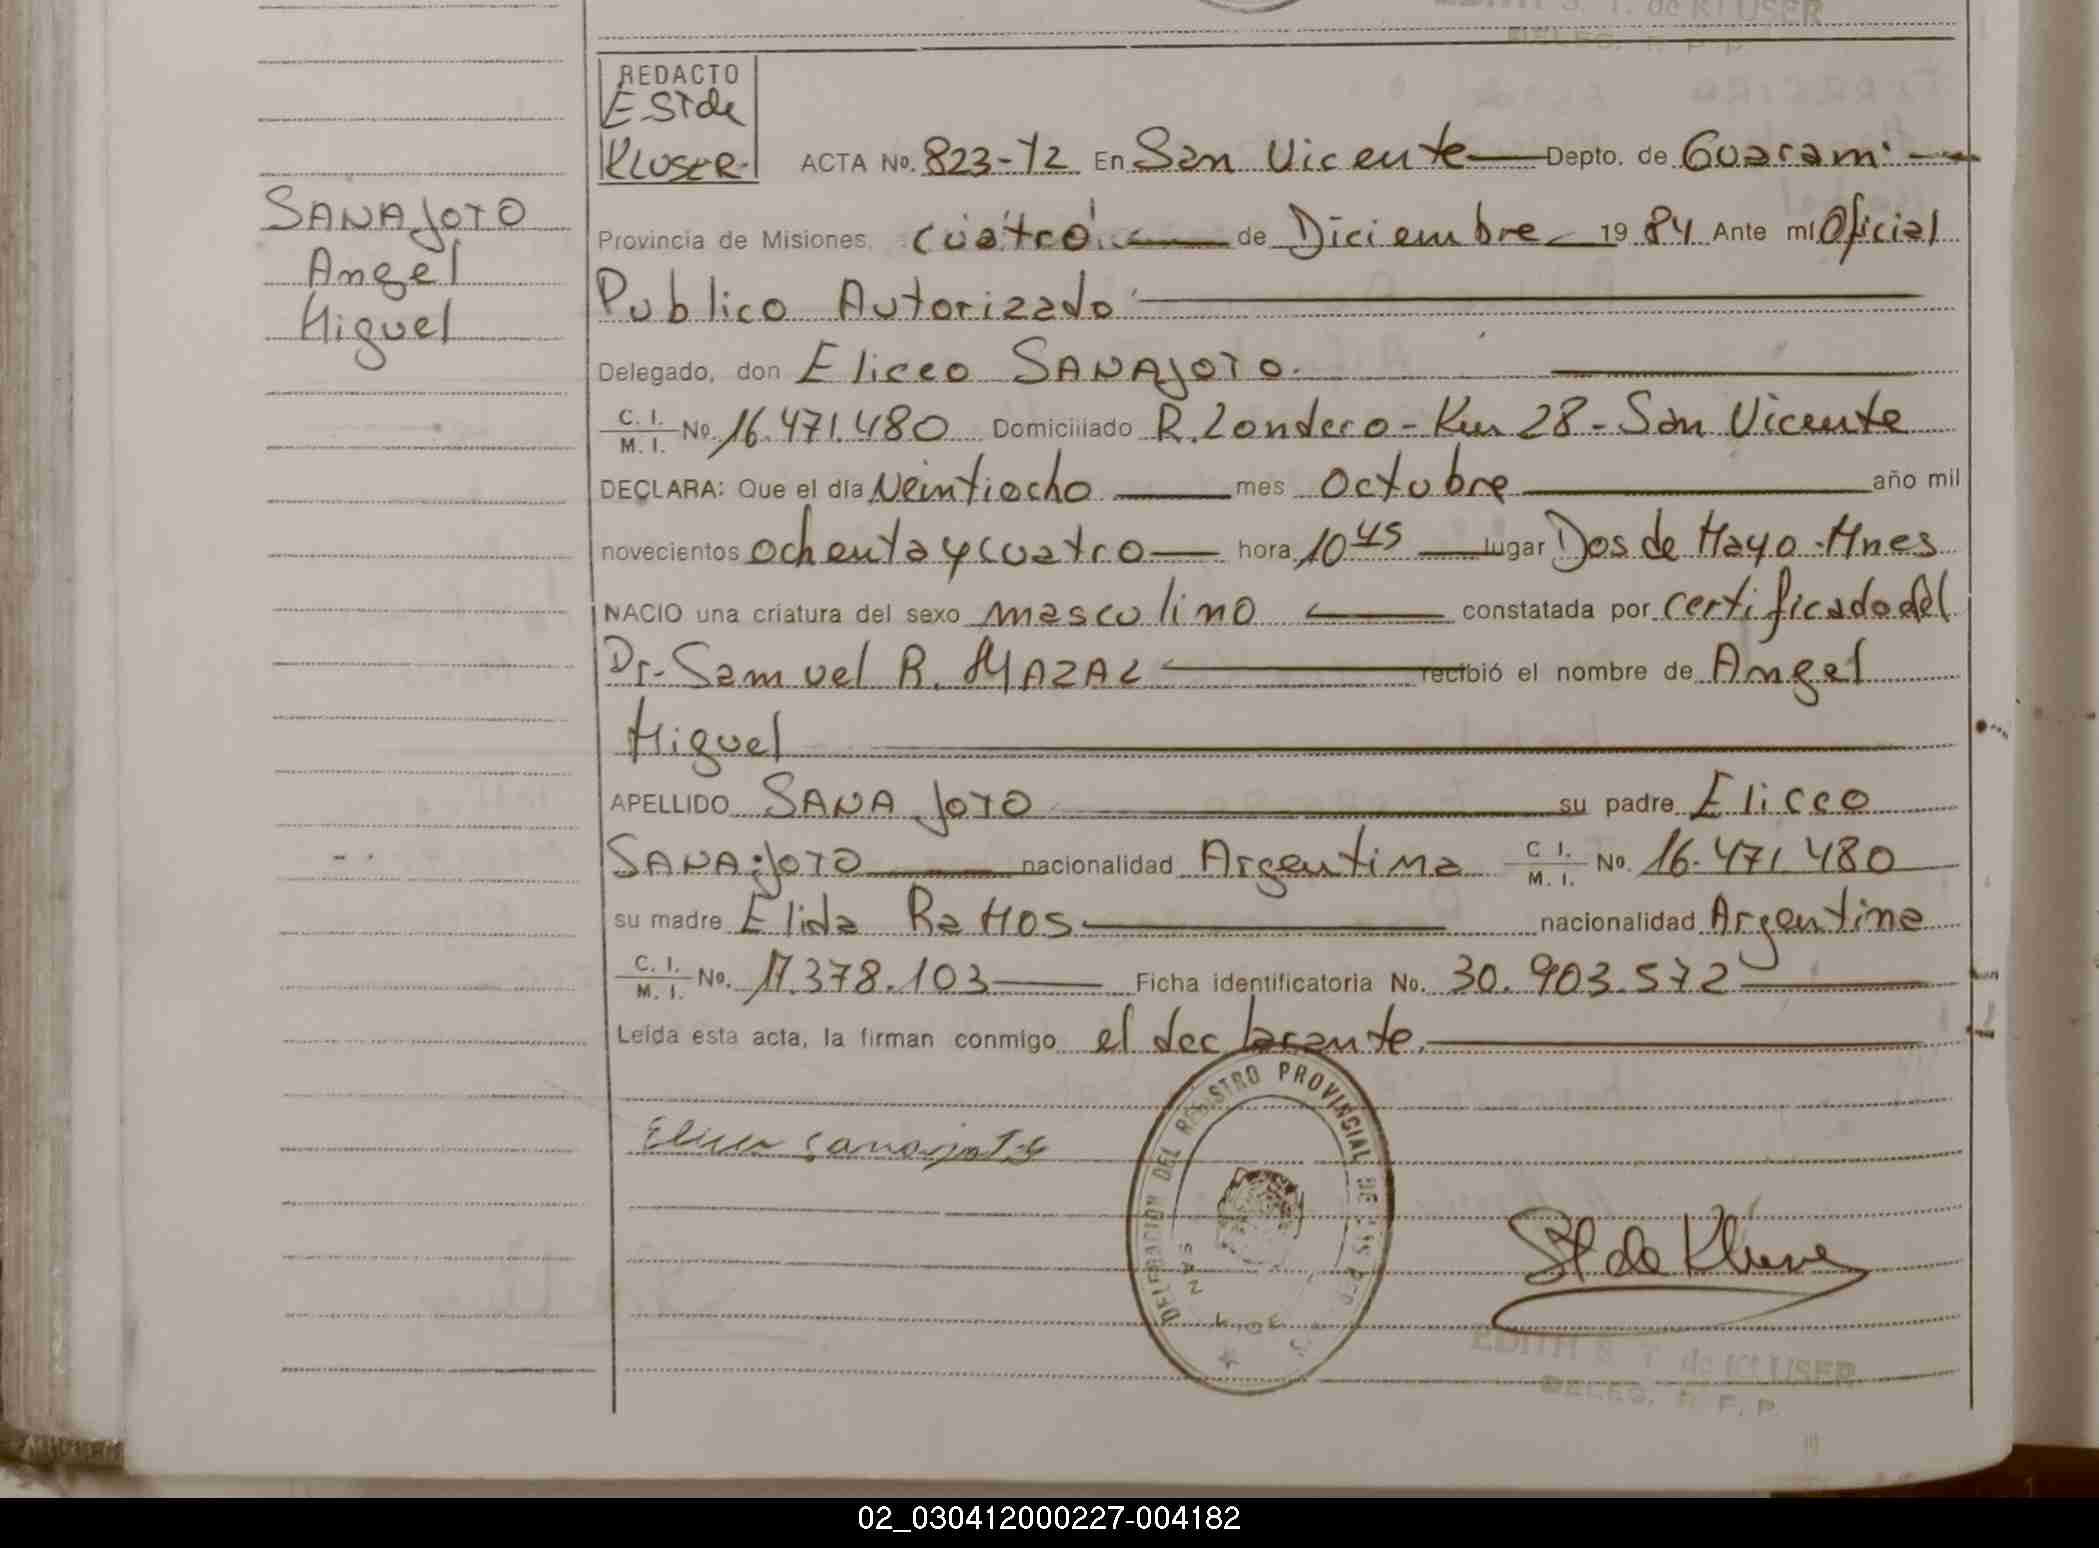 EDITH S. T. de KLUSER
DELEG. R. P. P.
REDACTO
E STde
KLUSER
ACTA No. 823-T2 En San Vicente Depto. de Guarani
SANAJOTO
Angel
Miguel
Provincia de Misiones, cuatro de Diciembre 1984 Ante mí Oficial
Publico Autorizado
Delegado, don Eliceo SANAJOTO.
C. I. / M. I. No. 16.471.480 Domiciliado R. Londero - Km 28 - San Vicente
DECLARA: Que el día Veintiocho mes Octubre año mil
novecientos ochenta y cuatro hora 10 45 lugar Dos de Mayo - Mnes
NACIO una criatura del sexo masculino constatada por certificado del
Dr. Samuel R. MAZAL recibió el nombre de Angel
Miguel
APELLIDO SANAJOTO su padre Eliceo
SANAJOTO nacionalidad Argentina C I. / M. I. No. 16.471.480
su madre Elida RaMOS nacionalidad Argentina
C. I. / M. I. No. 17.378.103 Ficha identificatoria No. 30.903.572
Leída esta acta, la firman conmigo el declarante.
DELEGACION DEL REGISTRO PROVINCIAL DE LAS PER
SAN VICENTE
Eliceo Sanajoto
ST de Kluser
EDITH S. T. de KLUSER
DELEG. R. P. P.
02_030412000227-004182